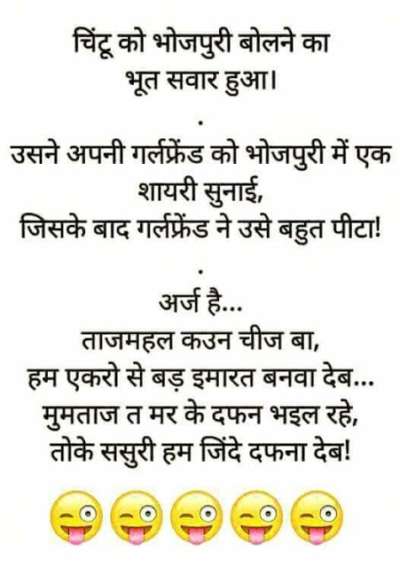 चिंटू को भोजपुरी बोलने का
भूत सवार हुआ।
.
उसने अपनी गर्लफ्रेंड को भोजपुरी में एक
शायरी सुनाई,
जिसके बाद गर्लफ्रेंड ने उसे बहुत पीटा!
.
अर्ज है...
ताजमहल कउन चीज बा,
हम एकरो से बड़ इमारत बनवा देब...
मुमताज त मर के दफन भइल रहे,
तोके ससुरी हम जिंदे दफना देब!
😜😜😜😜😜